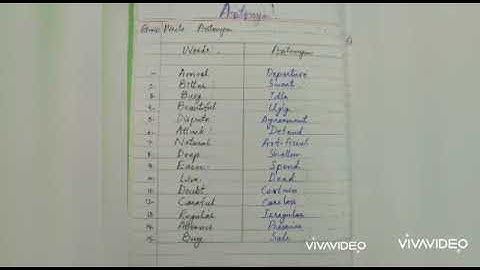 Antonym
Give Antonym
Words Antonym
1. Arrival Departure
2. Bitter Sweet
3. Busy Idle
4. Beautiful Ugly
5. Dispute Agreement
6. Attack Defend
7. Natural Artificial
8. Deep Shallow
9. Earn Spend
10. Live Dead
11. Doubt Certain
12. Careful Careless
13. Regular Irregular
14. Absence Presence
15. Buy Sale
VIVAVIDEO VIVAVIDEO